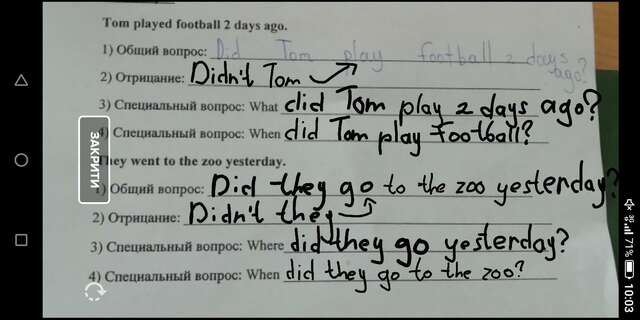 Tom played football 2 days ago.
1) Общий вопрос: Did Tom play football 2 days ago?
2) Отрицание: Didn't Tom
3) Специальный вопрос: What did Tom play 2 days ago?
4) Специальный вопрос: When did Tom play football?
They went to the zoo yesterday.
1) Общий вопрос: Did they go to the zoo yesterday?
2) Отрицание: Didn't they
3) Специальный вопрос: Where did they go yesterday?
4) Специальный вопрос: When did they go to the zoo?
ЗАКРИТИ
3G 71% 10:03